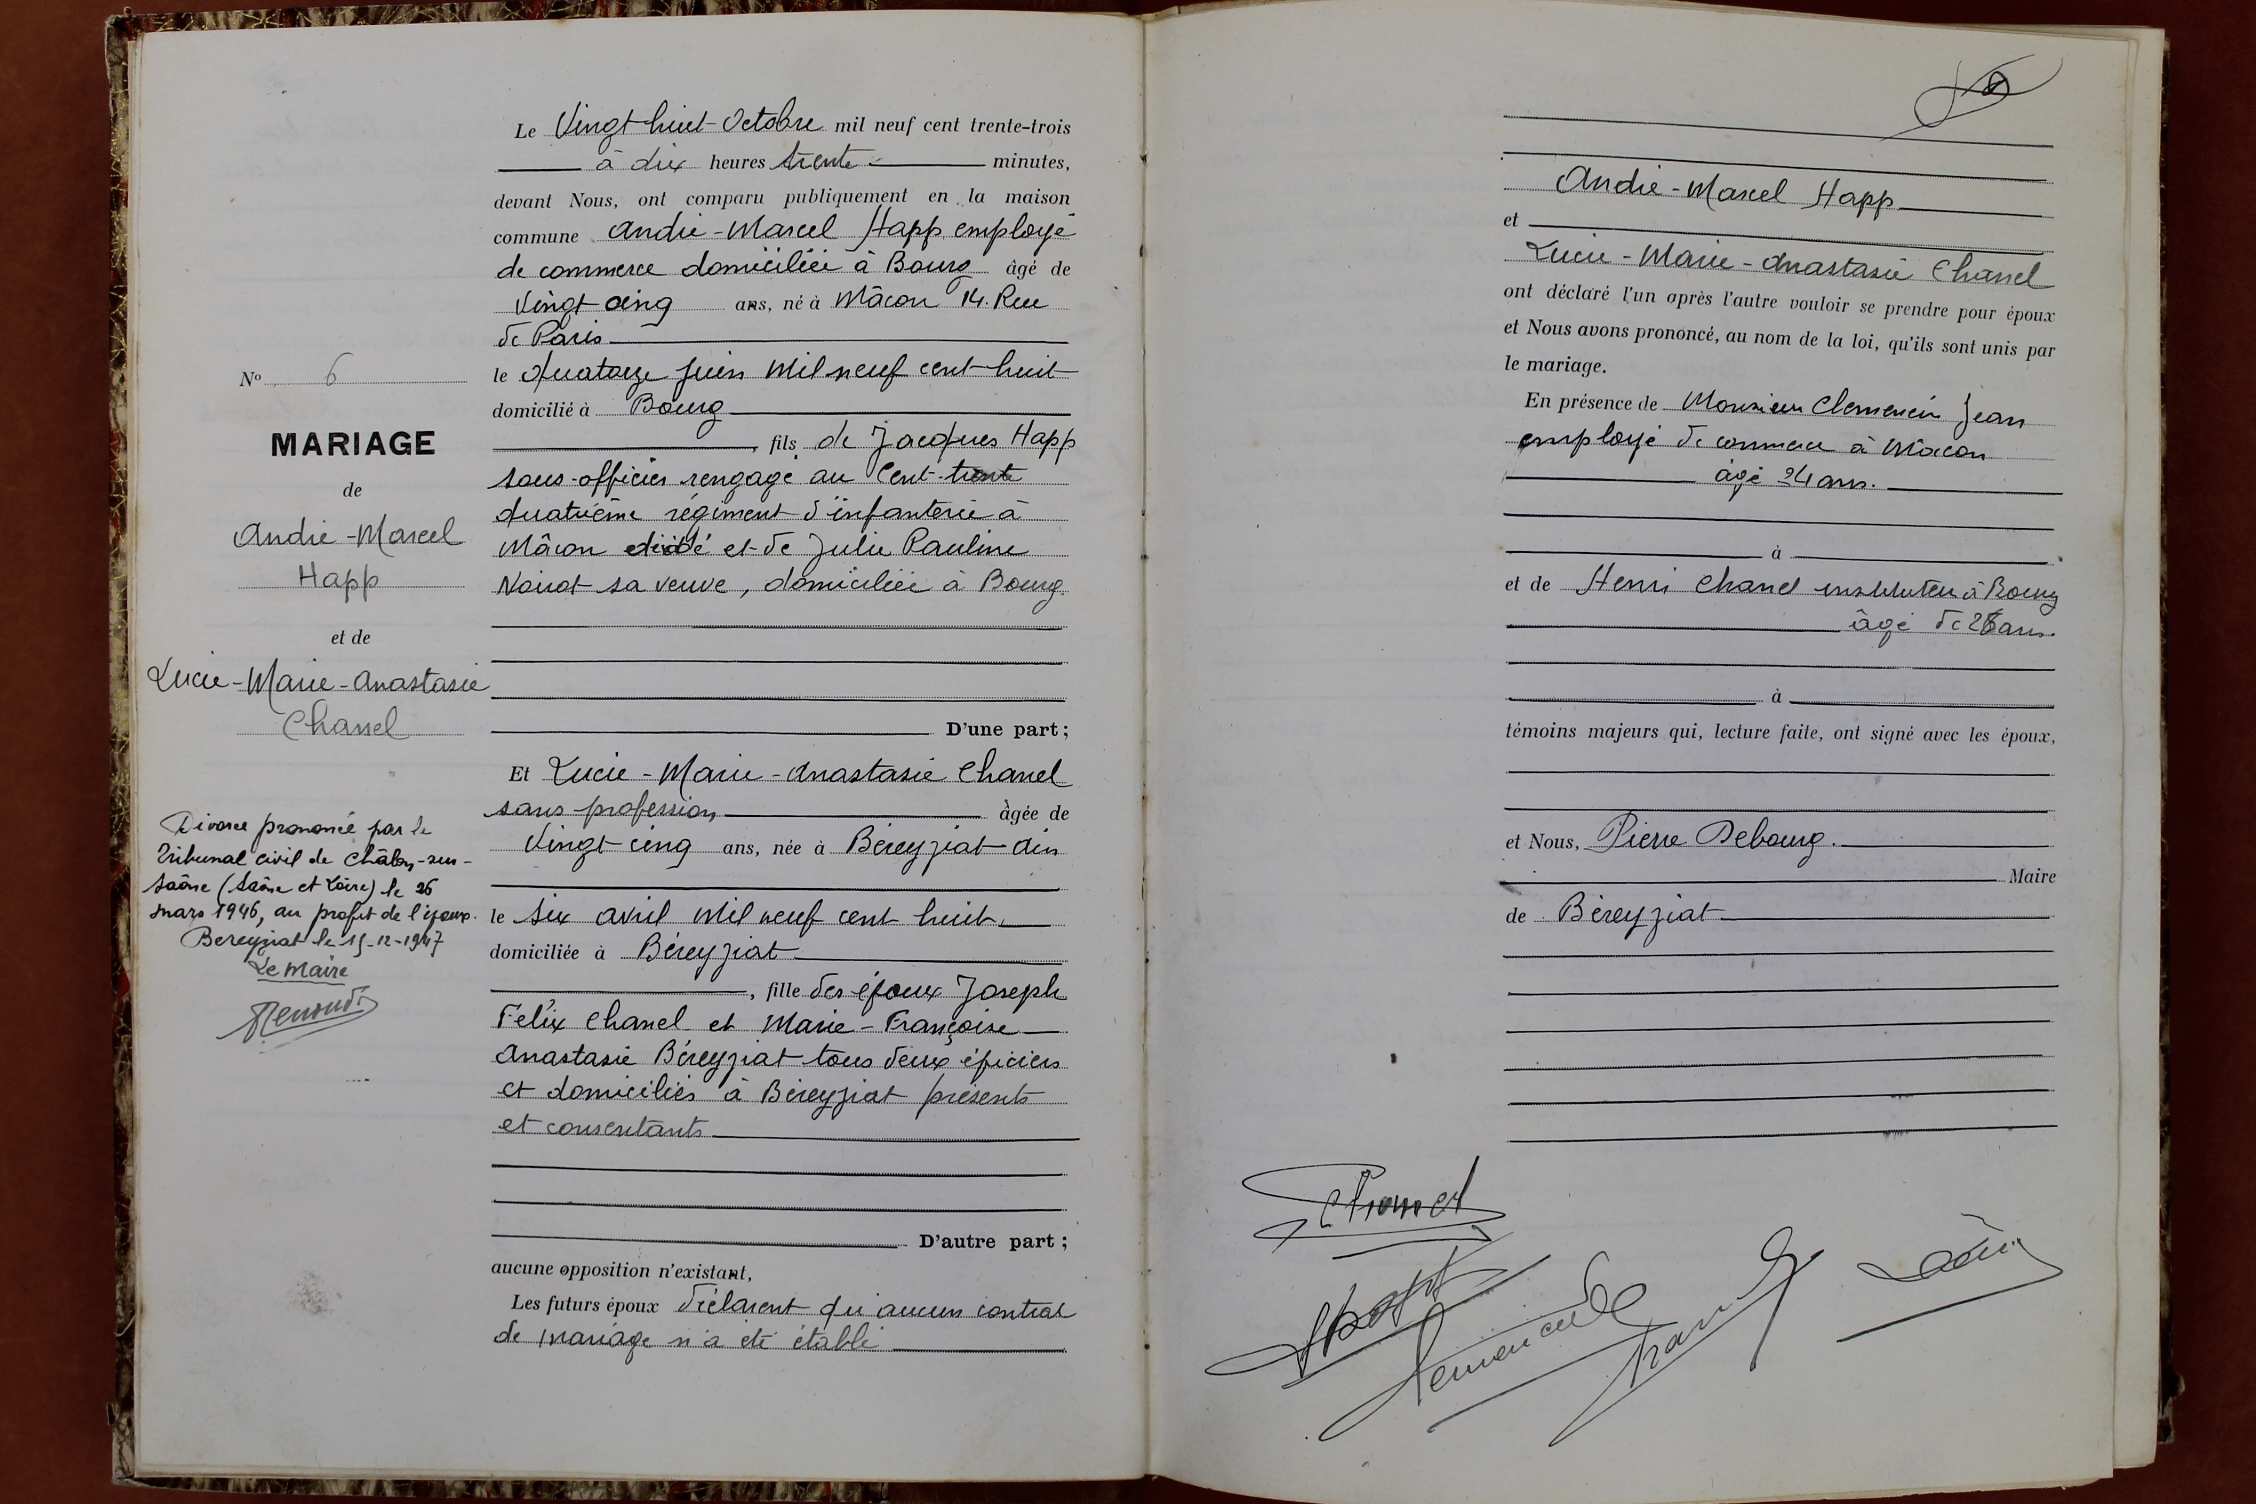 Le Vingt huit Octobre mil neuf cent trente-trois
à dix heures trente minutes,
devant Nous, ont comparu publiquement en la maison
commune André-Marcel Happ employé
de commerce domiciliée à Bourg âgé de
Vingt cinq ans, né à Mâcon 14. Rue
de Paris
le quatorze juin mil neuf cent huit
domicilié à Bourg
, fils de Jacques Happ
sous-officier rengagé au Cent-trente
quatrième régiment d'infanterie à
Mâcon décédé et de Julie Pauline
sa veuve, domiciliée à Bourg
D'une part;
Et Lucie-Marie-Anastasie Chanel
sans profession âgée de
Vingt cinq ans, née à Béreyziat Ain
le six avril mil neuf cent huit
domiciliée à Béreyziat
, fille des époux Joseph
Félix Chanel et Marie-Françoise
Anastasie Béreyziat tous deux épiciers
et domiciliés à Béreyziat présents
et consentants
D'autre part;
aucune opposition n'existant,
Les futurs époux déclarent qu'aucun contrat
de mariage n'a été établi
No 6
MARIAGE
de
André-Marcel
Happ
et de
Lucie-Marie-Anastasie
Chanel
Divorce prononcé par le
Tribunal civil de Châlon-sur-
Saône (Saône et Loire) le 26
mars 1946, au profit de l'époux.
Bereyziat le 15-12-1947
Le Maire
André-Marcel Happ
et
Lucie-Marie-Anastasie Chanel
ont déclaré l'un après l'autre vouloir se prendre pour époux
et Nous avons prononcé, au nom de la loi, qu'ils sont unis par
le mariage.
En présence de Monsieur Clemencin Jean
employé de commerce à Mâcon
âgé 24 ans.
à
et de Henri Chanel instituteur à Bourg
âgé de 26 ans.
à
témoins majeurs qui, lecture faite, ont signé avec les époux,
et Nous, Pierre Debourg.
Maire
de Béreyziat